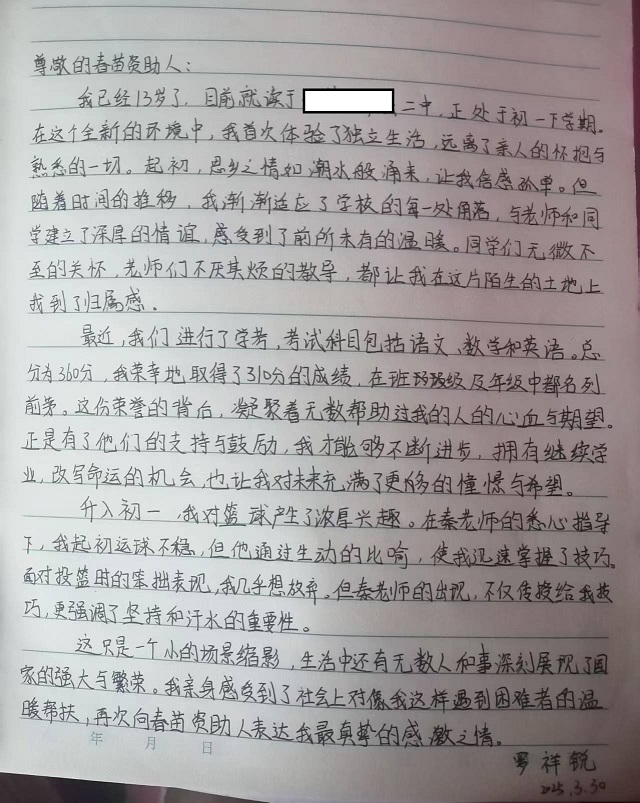 尊敬的春苗资助人：
我已经13岁了，目前就读于 二中，正处于初一下学期。
在这个全新的环境中，我首次体验了独立生活，远离了亲人的怀抱与
熟悉的一切。起初，思乡之情如潮水般涌来，让我倍感孤单。但
随着时间的推移，我渐渐适应了学校的每一处角落，与老师和同
学建立了深厚的情谊，感受到了前所未有的温暖。同学们无微不
至的关怀，老师们不厌其烦的教导，都让我在这片陌生的土地上
找到了归属感。
最近，我们进行了学考，考试科目包括语文、数学和英语。总
分为360分，我荣幸地取得了310分的成绩，在班级及年级中都名列
前茅。这份荣誉的背后，凝聚着无数帮助过我的人的心血与期望。
正是有了他们的支持与鼓励，我才能够不断进步，拥有继续学
业，改写命运的机会，也让我对未来充满了更多的憧憬与希望。
升入初一，我对篮球产生了浓厚兴趣。在秦老师的悉心指导
下，我起初运球不稳，但他通过生动的比喻，使我迅速掌握了技巧。
面对投篮时的笨拙表现，我几乎想放弃。但秦老师的出现，不仅传授给我技
巧，更强调了坚持和汗水的重要性。
这只是一个小的场景缩影，生活中还有无数人和事深刻展现了国
家的强大与繁荣。我亲身感受到了社会上对像我这样遇到困难者的温
暖帮扶，再次向春苗资助人表达我最真挚的感激之情。
年 月 日
罗祥锐
2025.3.30